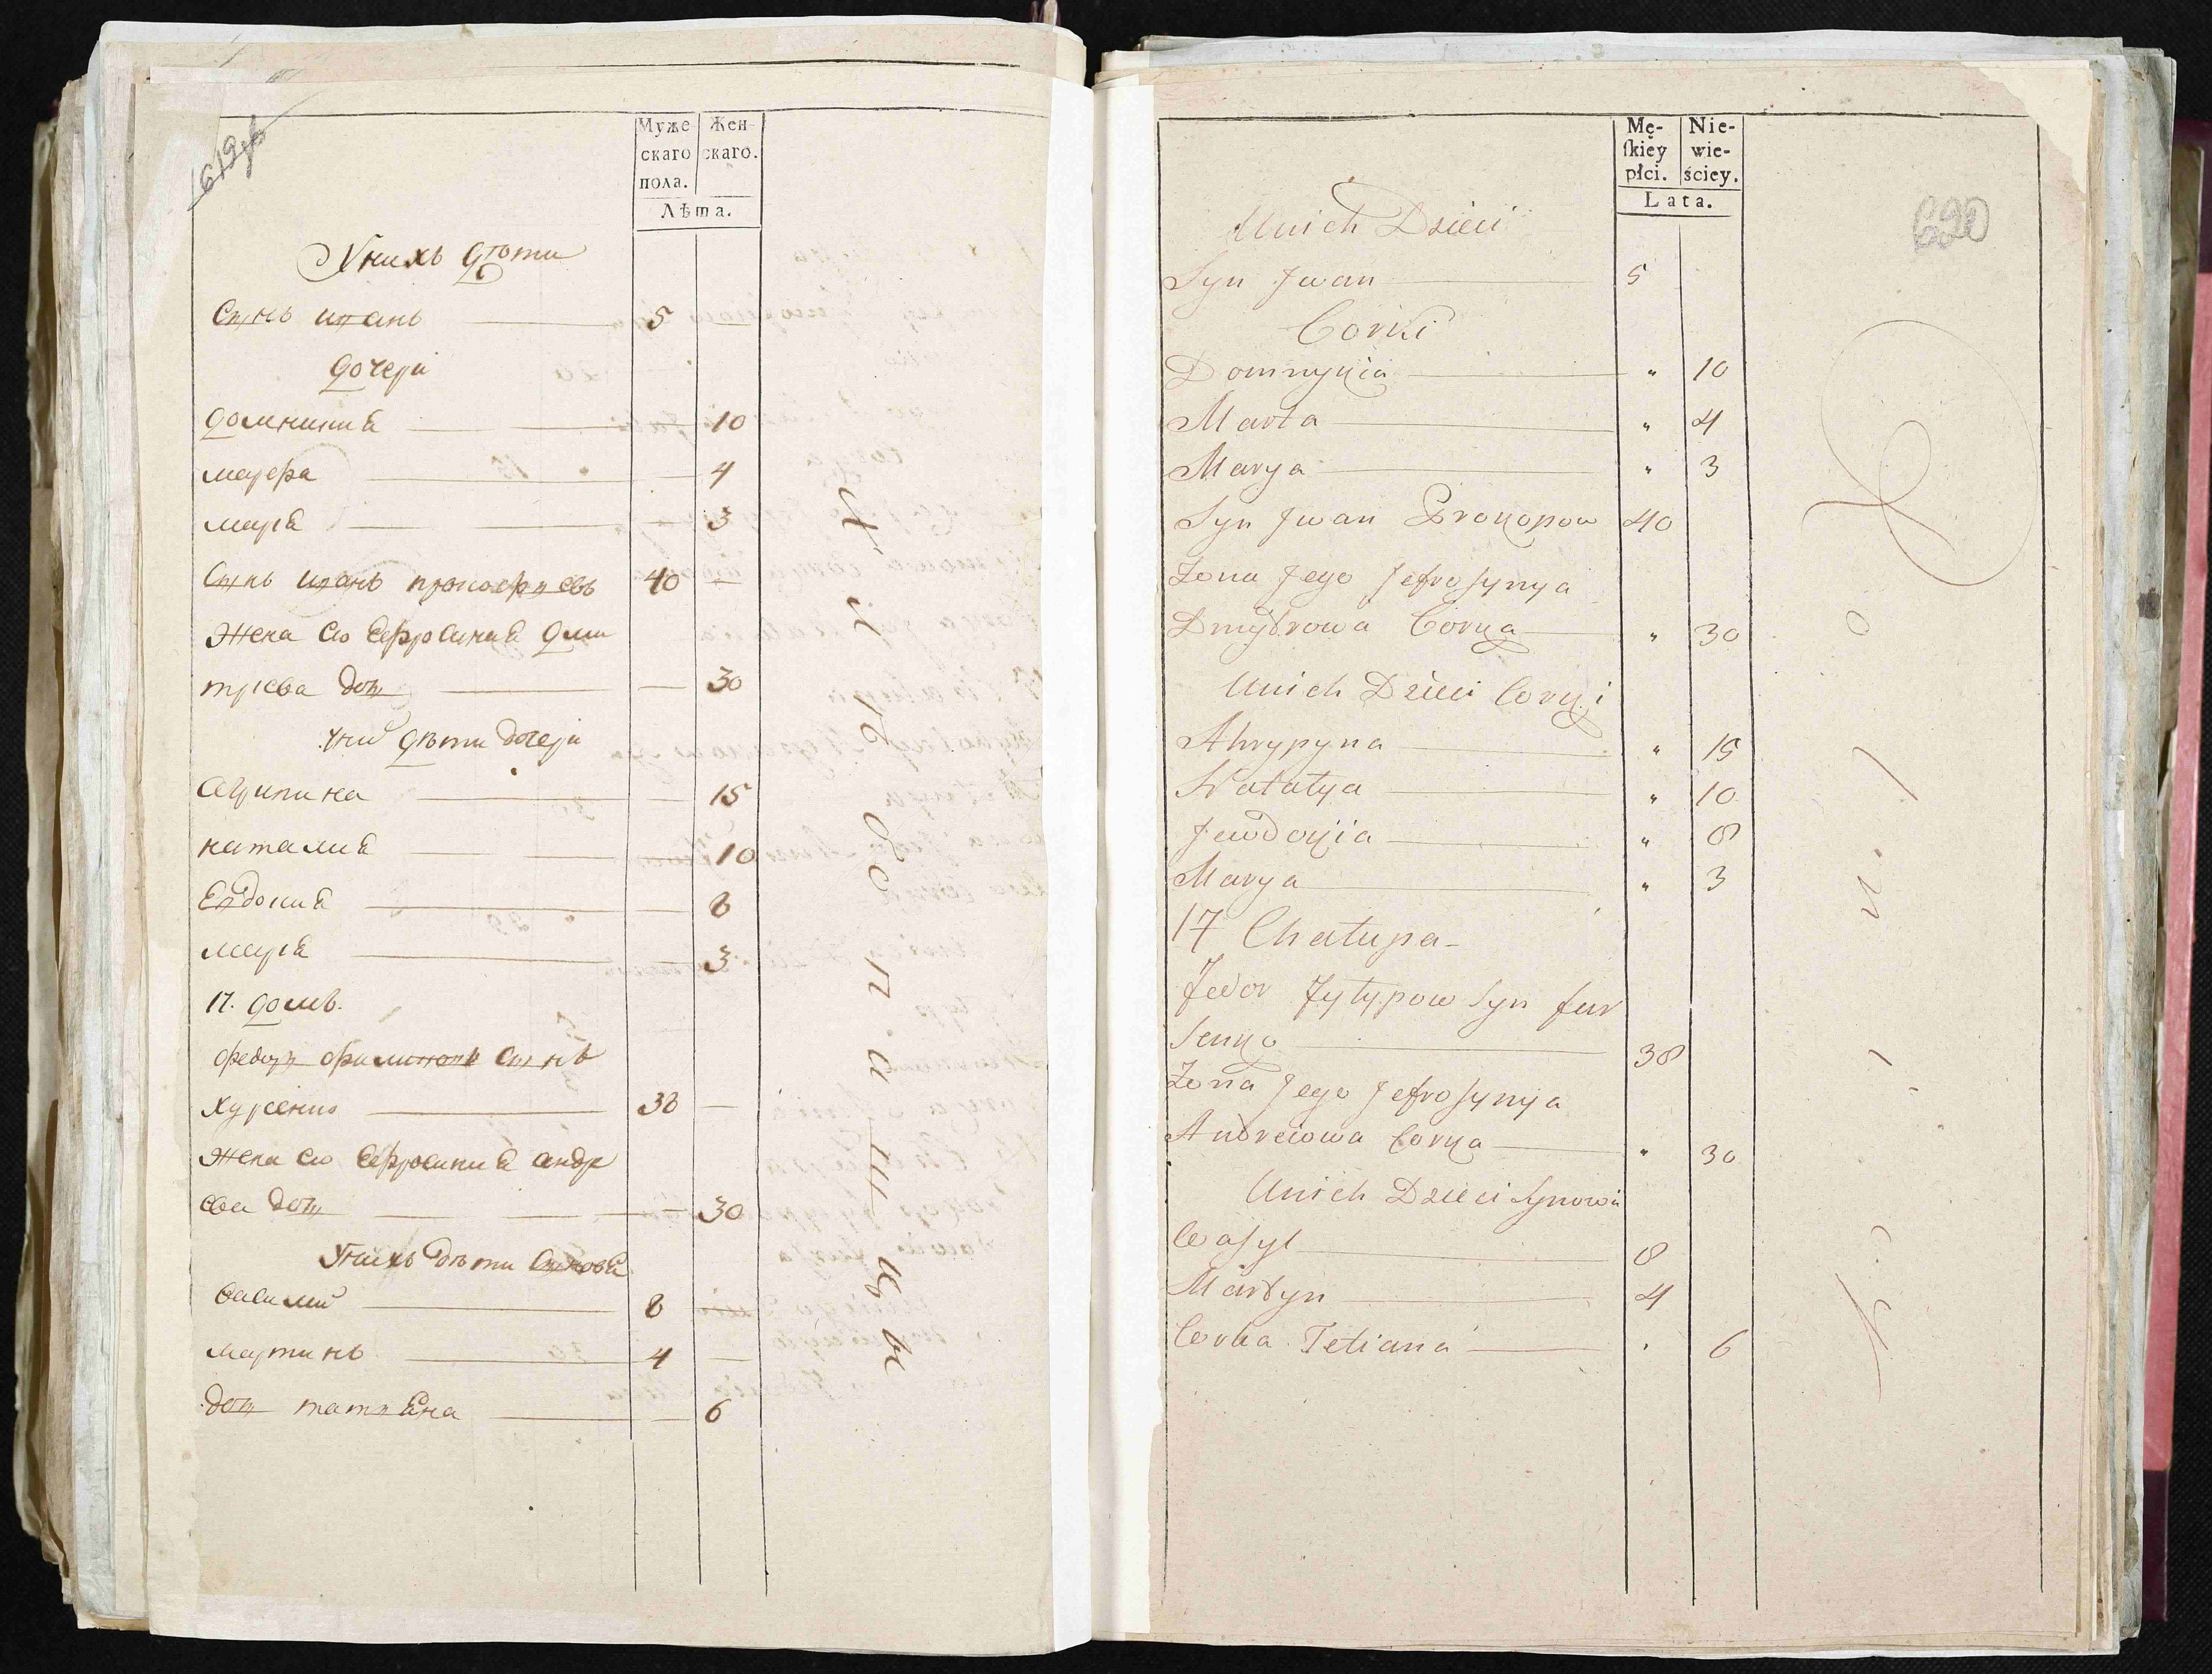 619об
Муже- Жен-
скаго скаго.
пола.
Лѣта.
У нихъ дѣти
Сынъ иванъ 5
дочери
домникия 10
марфа 4
мария 3
Сынъ иванъ прокофьевъ 40
Жена его Ефросиния дми
триева дочь 30
У них дѣти дочери
агрипина 15
наталия 10
Евдокия 8
мария 3
17. домъ.
федоръ филиповъ сынъ
Хурсенко 38
Жена его Ефросиния андре
ева дочь 30
У нихъ дѣти Сыновья
василий 8
мартинъ 4
дочь татьяна 6
620
Mę- Nie-
ſkiey wie-
płci. ściey.
Lata.
Unich Dzieci
Syn Jwan 5
Corki
Domnykia " 10
Marta " 4
Marya " 3
Syn Jwan Prokopow 40
Zona Jego Jefrosynya
Dmytrowa Corka " 30
Unich Dzieci Corki
Ahrypyna " 15
Natalya " 10
Jewdokia " 8
Marya " 3
17 Chałupa
Fedor Fylypow Syn Fur
senko 38
Zona Jego Jefrosynya
Andreiowa Corka " 30
Unich Dzieci Synowie
Wasyl 8
Martyn 4
Corka Tetiana " 6